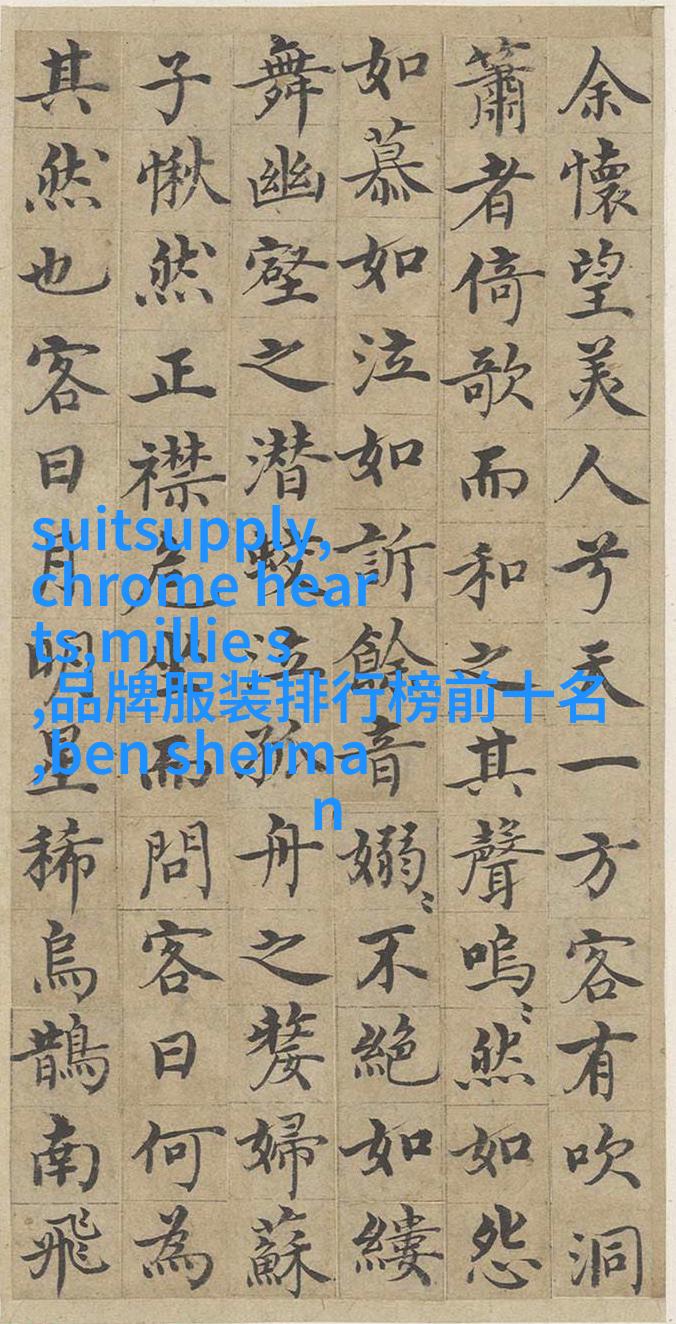 余懷望美人兮天一方客有吹洞
簫者倚歌而和之其聲嗚〻然如怨
如慕如泣如訴餘音嫋〻不絕如縷
舞幽壑之潜蛟泣孤舟之嫠婦蘇
子愀然正襟危坐而問客曰何為
其然也客曰月明星稀烏鵲南飛
suitsupply,
chrome hear
ts,millie s
,品牌服装排行榜前十名
,ben sherma
n